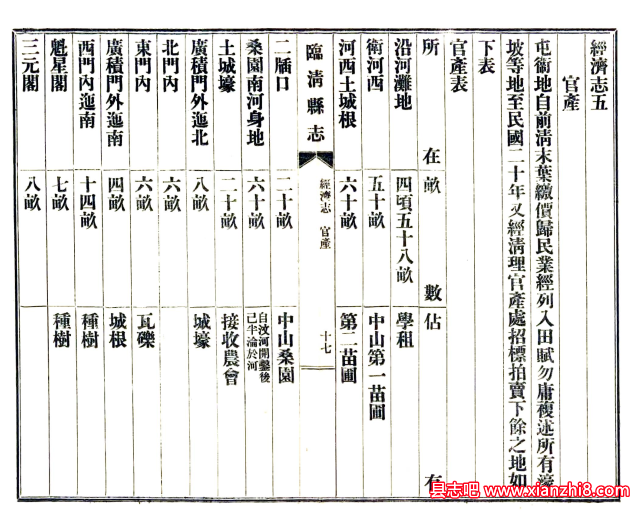 經濟志五
官產
屯衞地自前淸末葉繳價歸民業經列入田賦勿庸複述所有濠
坡等地至民國二十年又經淸理官產處招標拍賣下餘之地如
下表
官產表
所在 畝數 佔有
沿河灘地 四頃五十八畝 學租
衛河西 五十畝 中山第一苗圃
河西土城根 六十畝 第二苗圃
臨淸縣志 經濟志 官產 十七
二牐口 二十畝 中山桑園
桑園南河身地 六十畝 自汶河開鑿後己半淪於河
土城壕 二十畝 接收農會
廣積門外迤北 八畝 城壕
北門內 六畝
東門內 六畝 瓦礫
廣積門外迤南 四畝 城根
西門內迤南 十四畝 種樹
魁星閣 七畝 種樹
三元閣 八畝
县志吧 www.xianzhi8.com